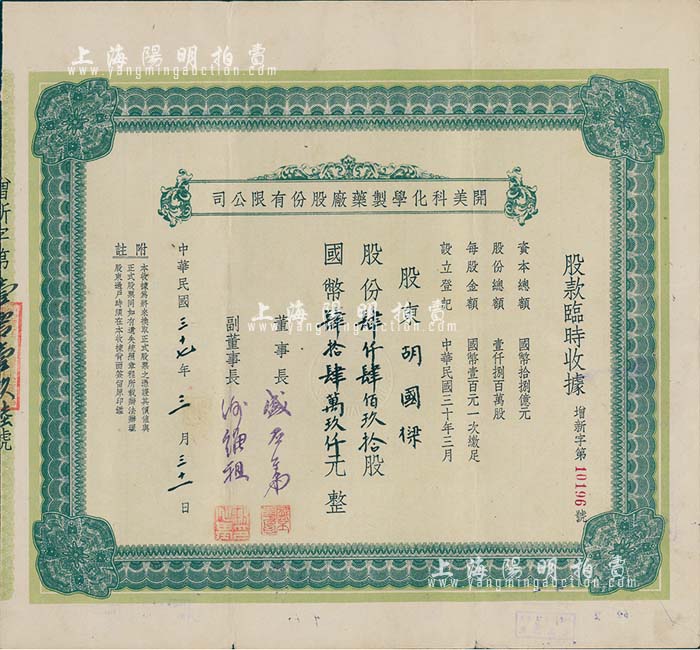 上海陽明拍賣
www.yangmingauction.com
開美科化學製藥廠股份有限公司
股款臨時收據
增新字第10196號
資本總額 國幣拾捌億元
股份總額 壹仟捌百萬股
每股金額 國幣壹百元一次繳足
設立登記 中華民國三十年三月
股東胡國樑
股份肆仟肆佰玖拾股
國幣肆拾肆萬玖仟元整
董事長
副董事長
中華民國三十七年三月三十一日
附註
本收據為將來換取正式股票之憑證其價值與
正式股票同如有遺失統照章程所載辦法辦理
股東過戶時須在本收據背面簽留原印鑑
上海陽明拍賣
www.yangmingauction.com
上海陽明拍賣
www.yangmingauction.com